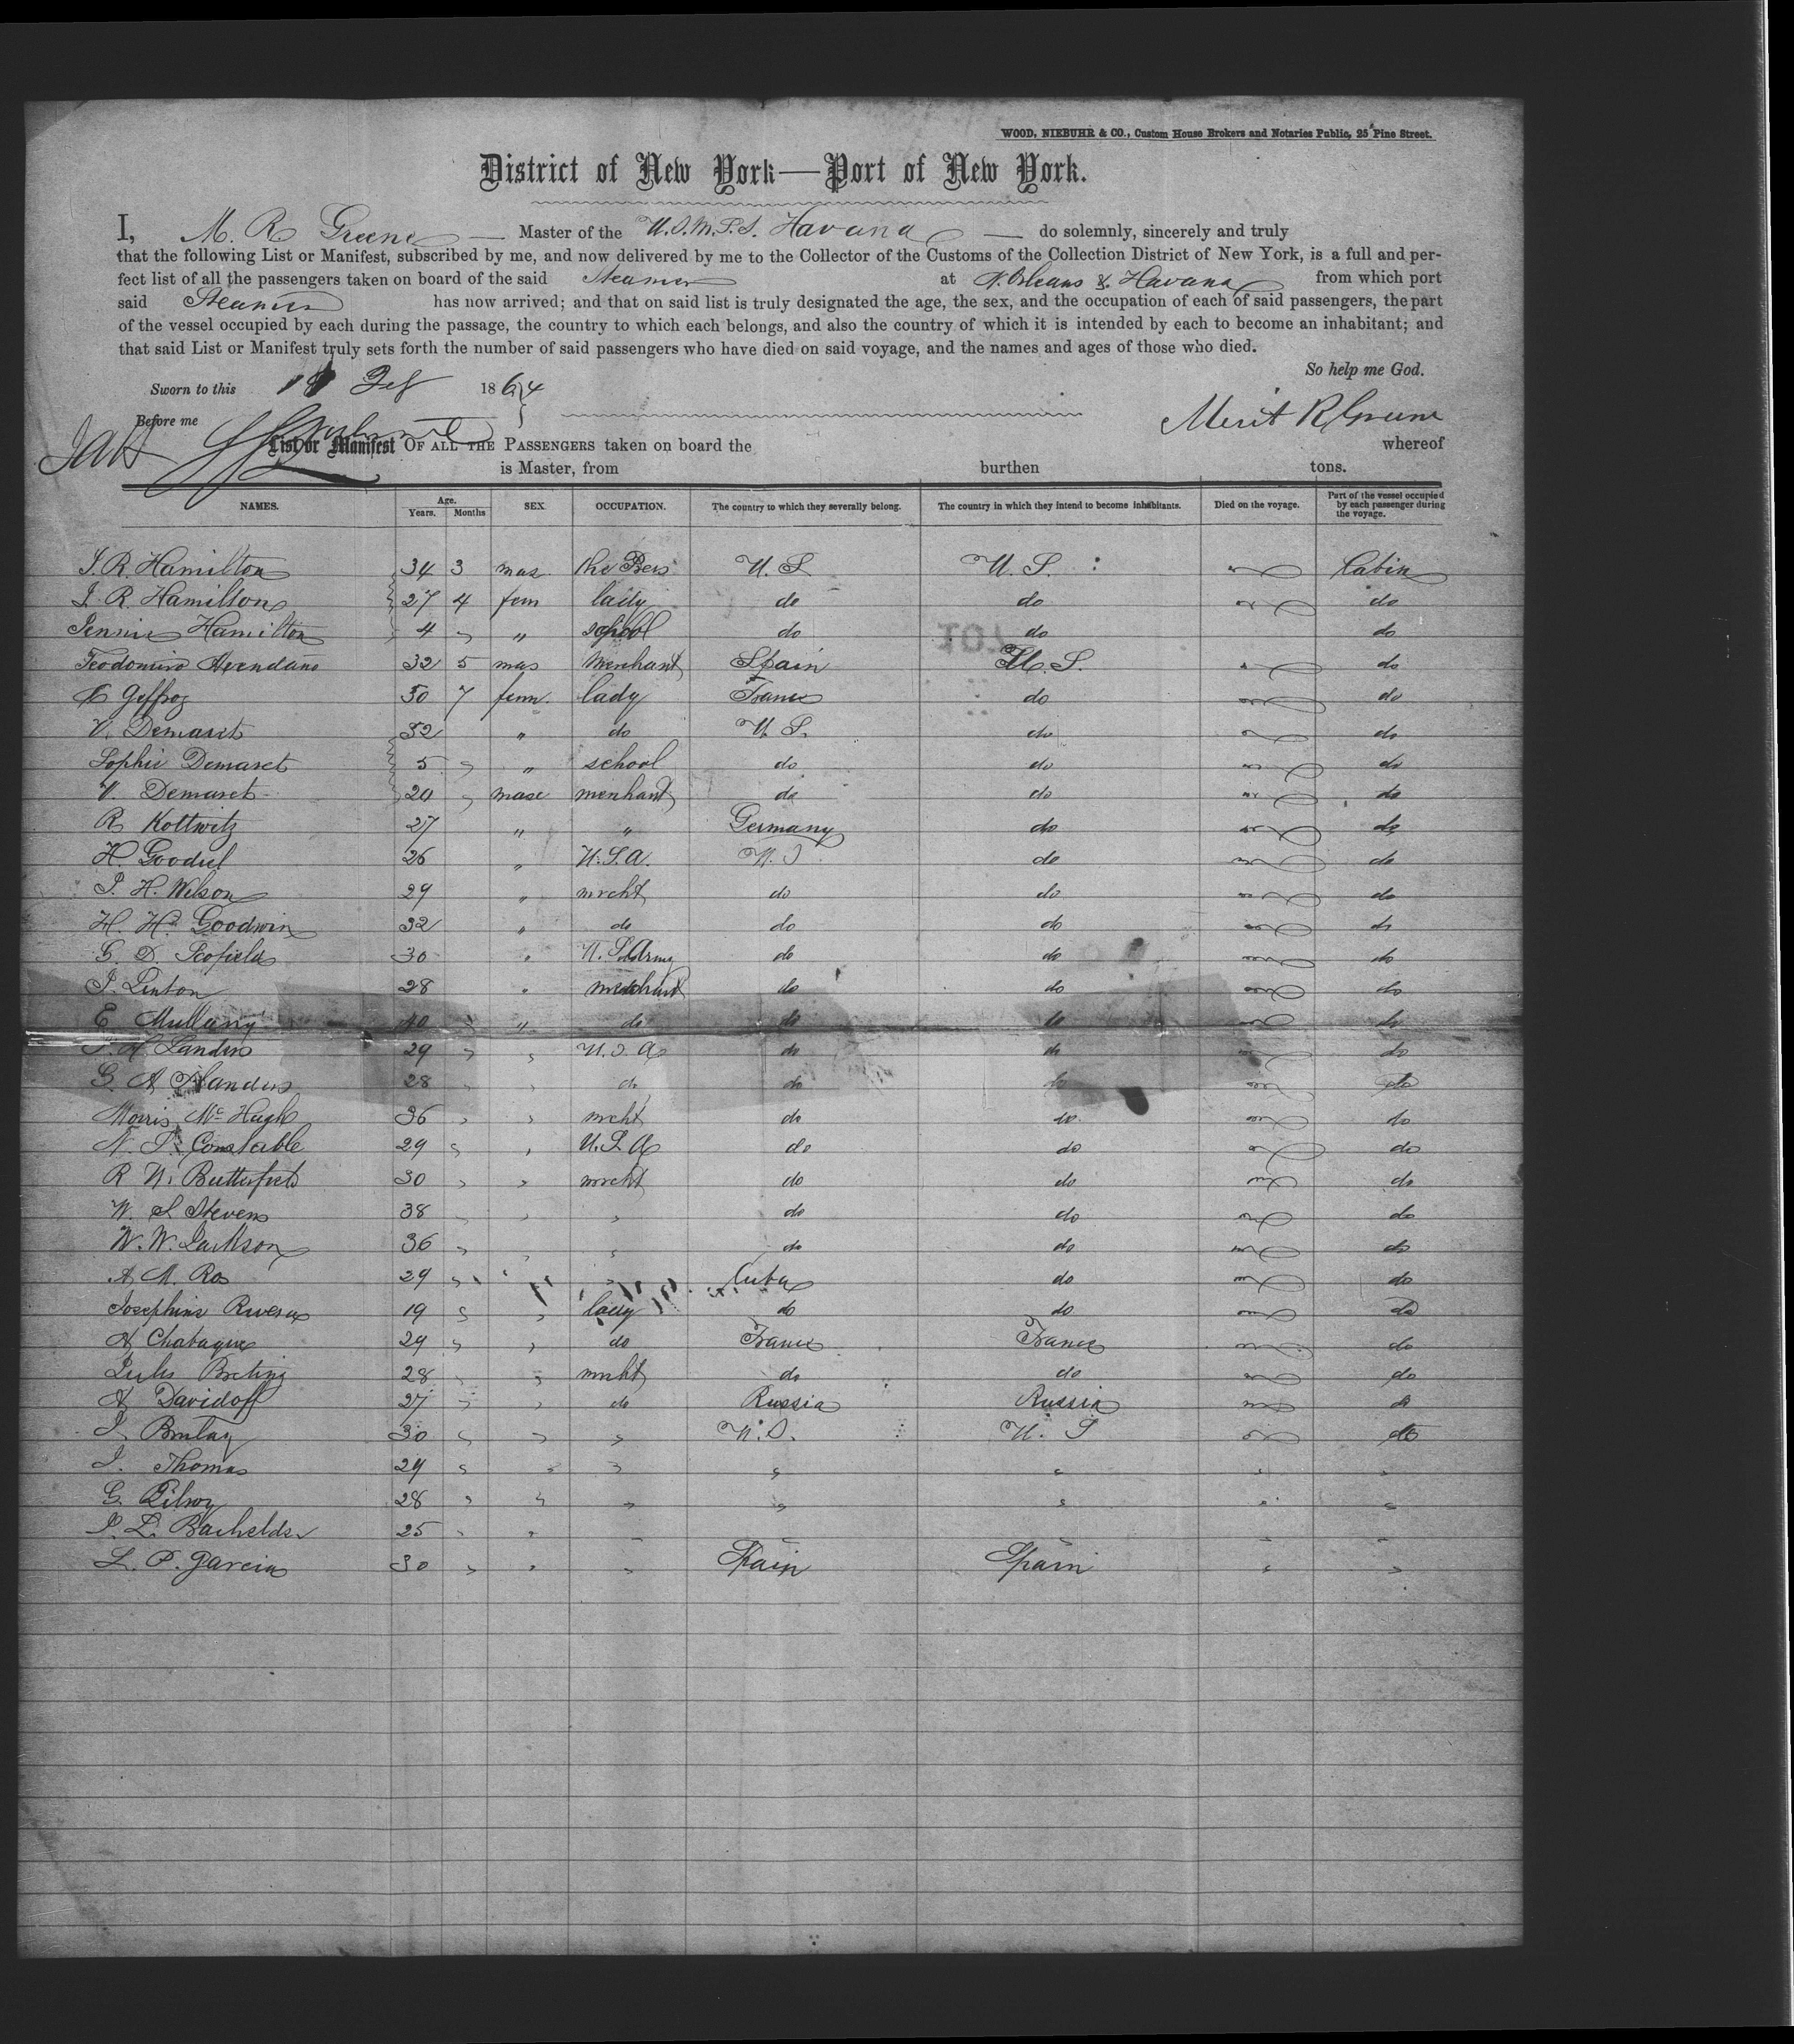 WOOD, NIEBUHR & CO., Custom House Brokers and Notaries Public, 25 Pine Street.
District of New York—Port of New York.
I, M. R. Greene — Master of the U.S.M.S.S. Havana — do solemnly, sincerely and truly
that the following List or Manifest, subscribed by me, and now delivered by me to the Collector of the Customs of the Collection District of New York, is a full and per-
fect list of all the passengers taken on board of the said Steamer at N. Orleans & Havana from which port
said Steamer has now arrived; and that on said list is truly designated the age, the sex, and the occupation of each of said passengers, the part
of the vessel occupied by each during the passage, the country to which each belongs, and also the country of which it is intended by each to become an inhabitant; and
that said List or Manifest truly sets forth the number of said passengers who have died on said voyage, and the names and ages of those who died.
So help me God.
Sworn to this Feb 1864
Before me
Merit R Greene
List or Manifest OF ALL THE PASSENGERS taken on board the whereof
is Master, from burthen tons.
NAMES. Age. Years. Months SEX OCCUPATION. The country to which they severally belong. The country in which they intend to become inhabitants. Died on the voyage. Part of the vessel occupied by each passenger during the voyage.
J. R. Hamilton 34 3 mas U. S. U. S. Cabin
J. R. Hamilton 27 4 fem lady do do do
Jennie Hamilton 4 " school do do do
Teodomiro Avendano 32 5 mas merchant Spain U. S. do
Geffroy 50 7 fem. lady France do do
V. Demaret 32 " do U. S. do do
Sophie Demaret 5 " school do do do
V. Demaret 20 masc merchant do do do
R Kottwitz 27 " " Germany do do
H. Goodiel 26 " U.S.A. U. S. do do
J. H. Wilson 29 " mrcht do do do
H. H. Goodwin 32 " do do do do
G. D. Scofield 30 " U. S. Army do do do
J. Linton 28 " merchant do do do
E Mullany 40 " do do do do
J. H. Landers 29 " U.S.A do do do
G. A Flanders 28 " do do do do
Morris McHugh 36 " mrcht do do do
N. P. Constable 29 " U.S.A do do do
R. N. Butterfield 30 " mrcht do do do
W. S Stevens 38 " " do do do
W. W. Jackson 36 " " do do do
A. M. Ros 29 " Cuba do do
Josephine Rivera 19 " lady do do do
A Chabaque 29 " do France France do
Jules Breting 28 " mrcht do do do
A Davidoff 27 " do Russia Russia do
J. 30 " " U.S. U. S do
J. Thomas 29 " " " " " "
G. Gilroy 28 " " " " " "
J. L. Bachelder 25 " " " " " "
L. P. Garcia 30 " " Spain Spain " "